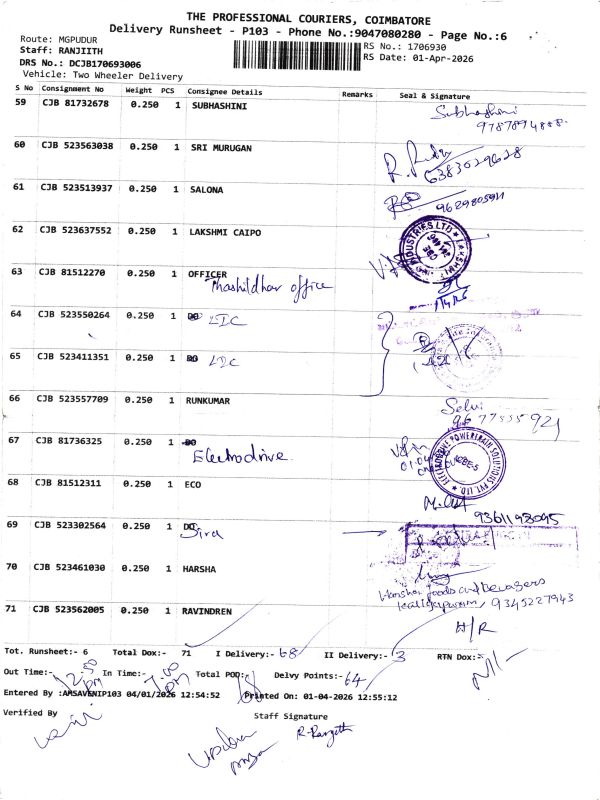 THE PROFESSIONAL COURIERS, COIMBATORE
Delivery Runsheet - P103 - Phone No.:9047080280 - Page No.:6
Route: MGPUDUR
RS No.: 1706930
Staff: RANJIITH
RS Date: 01-Apr-2026
DRS No.: DCJB170693006
Vehicle: Two Wheeler Delivery
S No Consignment No Weight PCS Consignee Details Remarks Seal & Signature
59 CJB 81732678 0.250 1 SUBHASHINI
Subhashini
60 CJB 523563038 0.250 1 SRI MURUGAN
6383029628
61 CJB 523513937 0.250 1 SALONA
9629805911
62 CJB 523637552 0.250 1 LAKSHMI CAIPO
63 CJB 81512270 0.250 1 OFFICER
Thashildhar office
64 CJB 523550264 0.250 1 LIC
65 CJB 523411351 0.250 1 LIC
66 CJB 523557709 0.250 1 RUNKUMAR
Selvi
67 CJB 81736325 0.250 1
Electrodrive
ELECTRODRIVE POWERTRAIN SOLUTIONS PVT. LTD.
68 CJB 81512311 0.250 1 ECO
9361198095
69 CJB 523302564 0.250 1
70 CJB 523461030 0.250 1 HARSHA
9345227943
71 CJB 523562005 0.250 1 RAVINDREN
H/R
Tot. Runsheet:- 6 Total Dox:- 71 I Delivery:- 68 II Delivery:- 3 RTN Dox:-
Out Time:- 12.50 pm In Time:- 7.00 pm Total POD:- Delvy Points:- 64
Entered By :AMSAVENIP103 04/01/2026 12:54:52 Printed On: 01-04-2026 12:55:12
Verified By
Staff Signature